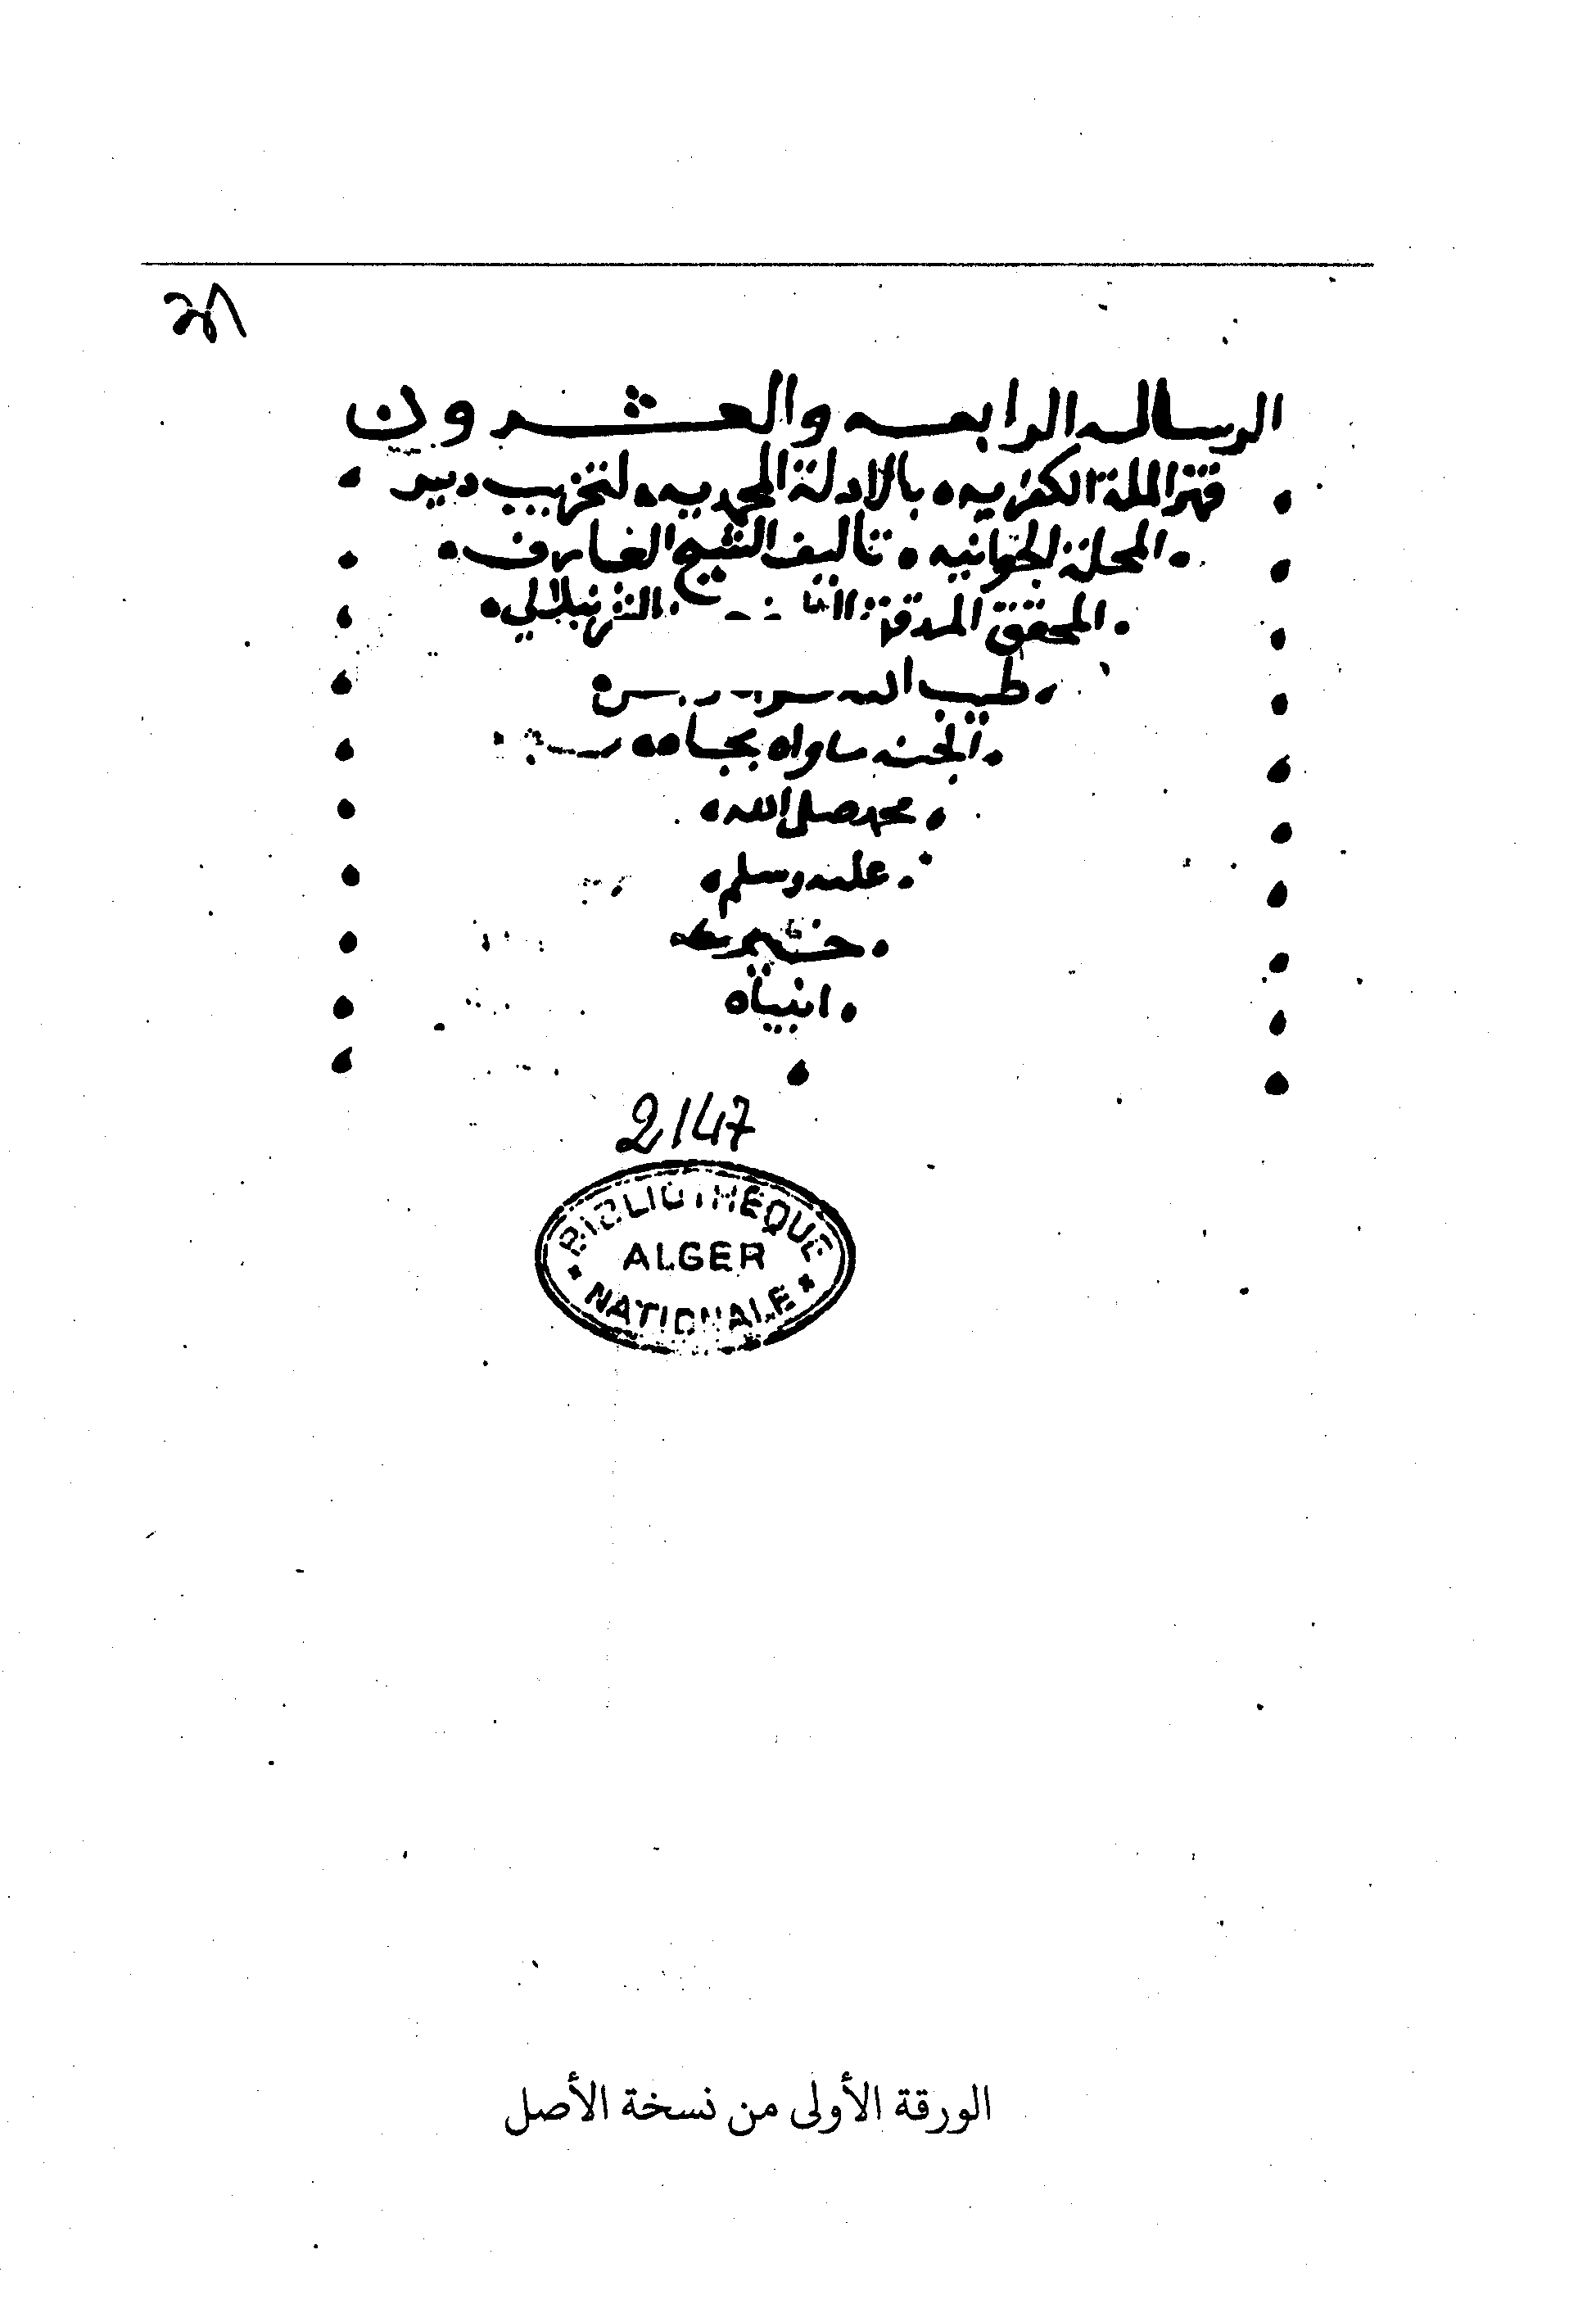 الرساله الرابعه والعشرون
قهر الملة الكفريه بالادلة المحمديه لتخريب دير
المحلة الجوانيه تاليف الشيخ العارف
المحقق المدقق الشرنبلالي
طيب الله
الجنه ماواه بجاه
محمد صلى الله
عليه وسلم
انبياه
2147
BIBLIOTHEQUE
ALGER
NATIONALE
الورقة الأولى من نسخة الأصل